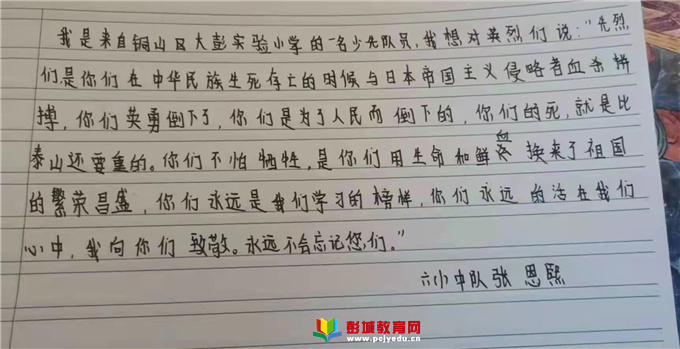 我是来自铜山区大彭实验小学的一名少先队员,我想对英烈们说:“先烈
们是你们在中华民族生死存亡的时候与日本帝国主义侵略者血杀拼
搏,你们英勇倒下了,你们是为了人民而倒下的,你们的死,就是比
泰山还要重的。你们不怕牺牲,是你们用生命和鲜血换来了祖国
的繁荣昌盛,你们永远是我们学习的榜样,你们永远的活在我们
心中,我向你们致敬。永远不会忘记您们。”
六(1)中队张恩熙
彭城教育网
www.pcjyedu.cn